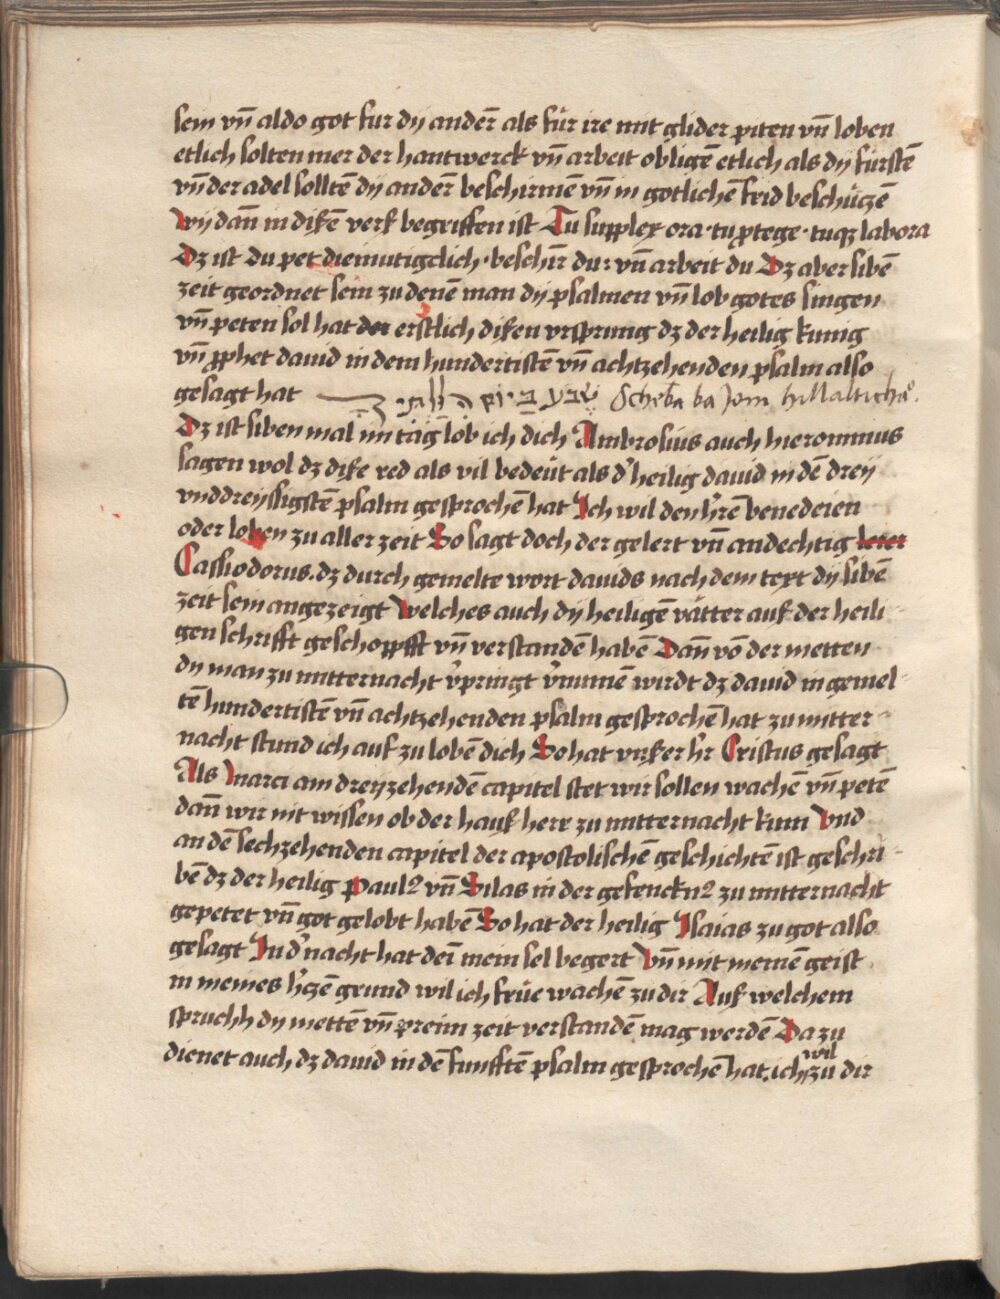 sein vn̄ aldo got fur dij ander̄ als für ire mit glider piten vn̄ loben
etlich solten mer der hantwerck vn̄ arbeit obligē etlich als dij fürstē
vn̄ der adel solltē dij ander̄ beschirmē vn̄ in gotlichē frid beschüczē
Wij dan̄ in disē vers begriffen ist Tu supplex ora · tu ꝓtege · tuqꝫ labora
Dz ist du pet diemutigclich · beschir̄ du: vn̄ arbeit du Dz aber sibē
zeit geordnet sein zu denē man dij psalmen vn̄ lob gotes singen
vn̄ peten sol hat der erstlich disen vrsprung dz der heilig kunig
vn̄ ꝓphet dauid in dem hundertistē vn̄ achtzehenden psalm also
gesagt hat שבע ביום הללתיך Scheba ba Jom hillalticha.
Dz ist siben mal im tag lob ich dich Ambrosius auch hieronimus
sagen wol dz dise red als vil bedeüt als d' heilig dauid in dē dreij
vnddreijssigstē psalm gesprochē hat Ich wil den hr̄ē benedeien
oder loben zu aller zeit So sagt doch der gelert vn̄ andechtig lerer
Cassiodorus. dz durch gemelte wort dauids nach dem text dij sibē
zeit sein angezeigt Welches auch dij heiligē vätter aus der heili-
gen schrifft geschopfft vn̄ verstandē habē Dan̄ vō der metten
dij man zu mitternacht v'pringt v'numē wirdt dz dauid in gemel-
tē hundertistē vn̄ achtzehenden psalm gesprochē hat zu mitter-
nacht stund ich auf zu lobē dich So hat vnser h'r Cristus gesagt
Als Marci am dreijzehendē capitel stet wir sollen wachē vn̄ petē
dan̄ wir nit wissen ob der haus herr zu mitternacht kum Vnd
an dē sechzehenden capitel der apostolischē geschichtē ist geschri-
bē dz der heilig Paulꝰ vn̄ Silas in der gefencknꝰ zu mitternacht
gepetet vn̄ got gelobt habē So hat der heilig Isaias zu got also
gesagt In d' nacht hat dei mein sel begert Vn̄ mit meinē geist
in meines h'czē grund wil ich früe wachē zu dir Aus welchem
spruchh dij mettē vn̄ preim zeit verstandē mag werdē Da zu
dienet auch dz dauid in dē funfftē psalm gesprochē hat. ich wil zu dir